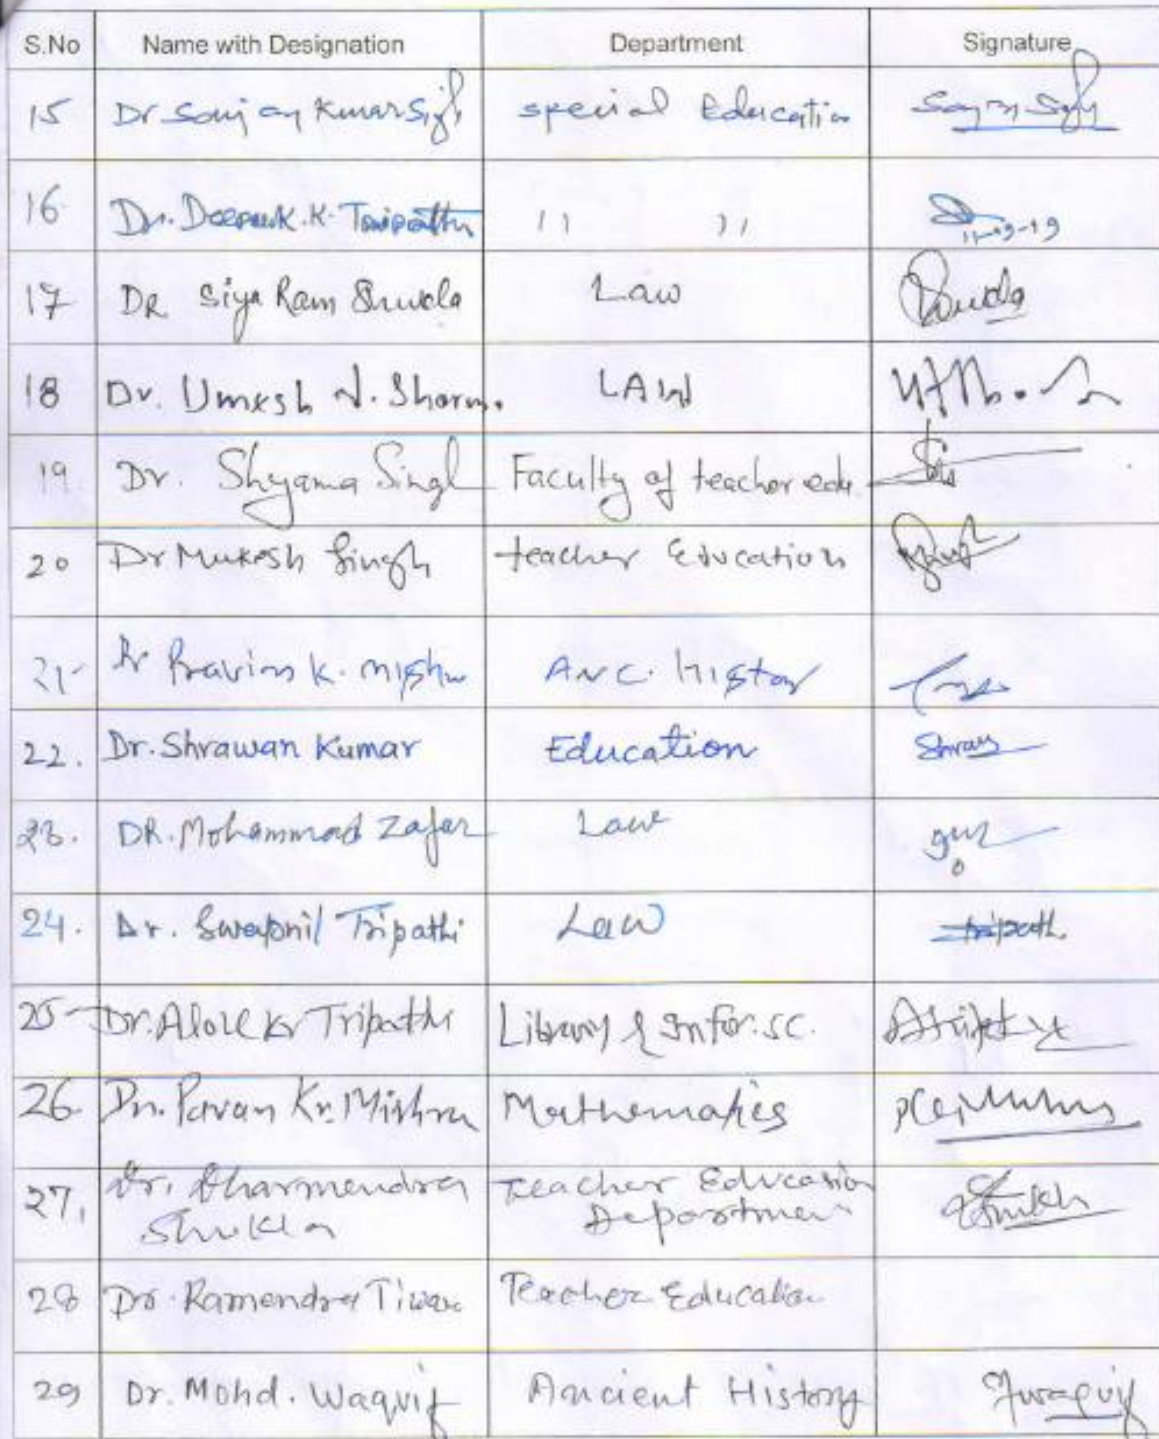 S.No Name with Designation Department Signature
15 Dr Sanjay Kumar Singh special Education
16 Dr. Deepak. K. Tripathi ,, ,,
11-09-19
17 DR Siya Ram Shukla Law
18 Dr. Umesh N. Sharma LAW
19 Dr. Shyama Singh Faculty of teacher edu
20 Dr Mukesh Singh teacher Education
21- Dr Pravin K. Mishra Anc. History
22. Dr. Shrawan Kumar Education
23. DR. Mohammad Zafar Law
24. Dr. Swapnil Tripathi Law Tripathi
25- Dr. Alok Kr Tripathi Library & Infor. Sc.
26. Dr. Pavan Kr. Mishra Mathematics
27. Dr. Dharmendra Teacher Education
Shukla Department
28 Dr. Ramendra Tiwari Teacher Education
29 Dr. Mohd. Waqvif Ancient History